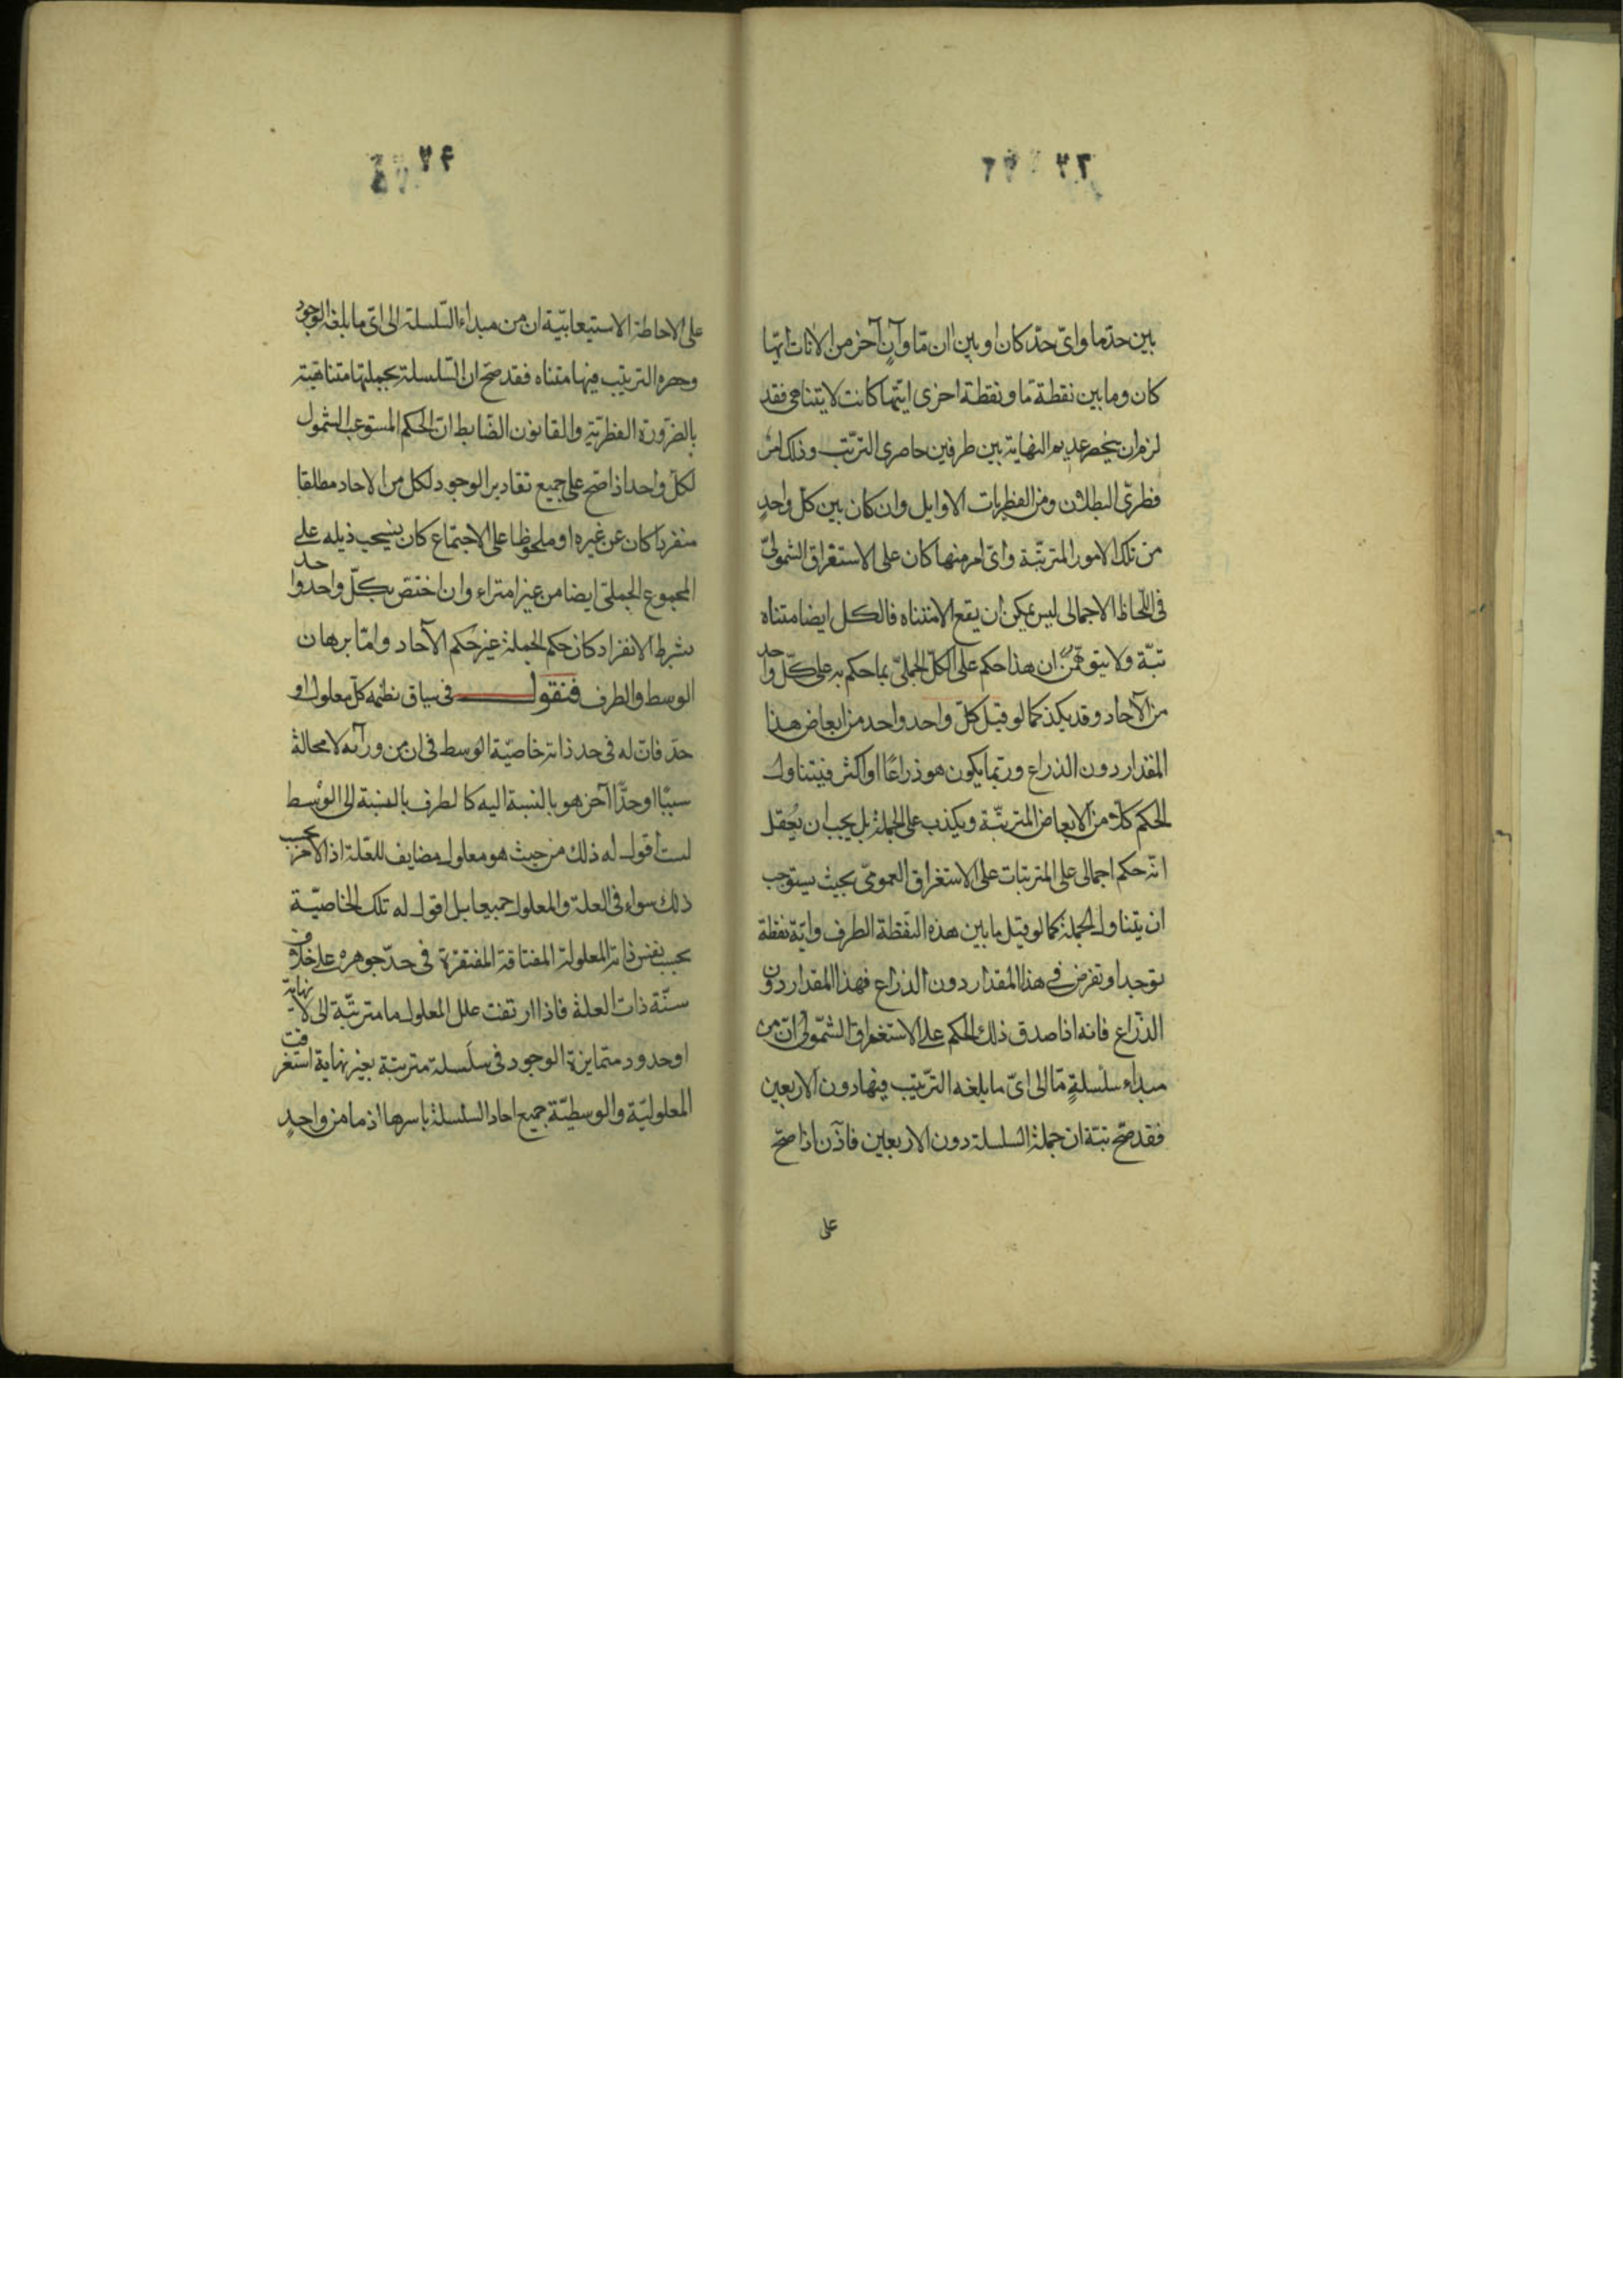 ٢٣
بين حدّ ما وایّ حدّ كان او بين ان مّا وآنٍ آخر من الانات ايّها
كان وما بين نقطة مّا ونقطة اخری ايّتها كانت لا يتناهی فقد
لزم ان ينحصر عديم النهاية بين طرفين حاصری الترتّب وذلك امر
فطریّ البطلان ومن الفطريات الاوايل وان كان بين كل واحدٍ
من تلك الامور المترتّبة وایّ امر منها كان علی الاستغراق الشمولیّ
فی اللّحاظ الاجمالی ليس يمكن ان يقع الا متناه فالكل ايضا متناه
تبّة ولا يتوهّمنّ ان هذا حكم علی الكلّ الجملیّ بما حكم به علی كلّ واحد
من الآحاد وقد يكذب كما لو قيل كلّ واحد واحد من ابعاض هذا
المقدار دون الذراع وربّما يكون هو ذراعًا او اكثر فيتناول
الحكم كلًّا من الابعاض المترتّبة ويكذب علی الجملة بل يجب ان يُعقل
انّه حكم اجمالی علی المترتبات علی الاستغراق العمومیّ بحيث يستوجب
ان يتناول الجملة كما لو قيل ما بين هذه النّقطة الطرف وايّة نقطة
توجد او تفرض فی هذا المقدار دون الذراع فهذا المقدار دون
الذّراع فانه اذا صدق ذلك الحكم علی الاستغراق الشّمولی انّ من
مبداء سلسلةٍ مّا الی ایّ ما بلغه الترّتيب فيها دون الاربعين
فقد صحّ تبّة ان جملة السلسلة دون الاربعين فاذن اذا صحّ
علی
٢٤
علی الاحاطة الاستيعابيّة ان من مبداء السّلسلة الی ایّ ما بلغه الوجود
وحصره الترتيب فيها متناه فقد صحّ ان السّلسلة بجملتها متناهيّة
بالضرّورة الفطريّة والقانون الضّابط انّ الحكم المستوعب الشمول
لكلّ واحد اذا صحّ علی جميع تقادير الوجود لكل من الاحاد مطلقا
منفردا كان عن غيره او ملحوظا علی الاجتماع كان ينسحب ذيله علی
المجموع الجملیّ ايضا من غير امتراء وان اختصّ بكلّ واحد واحد
بشرط الانفراد كان حكم الجملة غير حكم الآحاد وامّا برهان
الوسط والطرف فنقول فی سياق نظمه كلّ معلول او
حدّ فانّ له فی حد ذاته خاصيّة الوسط فی ان من ورآئه لا محالة
سببًا او حدًّا آخر هو بالنسبة اليه كالطرف بالنسبة الی الوسط
لست اقول له ذلك من حيث هو معلول مضايف للعّلة اذ الامر بحسب
ذلك سواء فی العلة والمعلول جميعا بل اقول له تلك الخاصيّة
بحسب نفس ذاته المعلولة المفتاقة المفتقرة فی حدّ جوهره علی خلاف
سنّة ذات العلة فاذا ارتقت علل المعلول ما مترتّبة الی لا نهاية
او حدود متمايزة الوجود فی سلسلة مترتبة بغير نهاية استغرقت
المعلوليّة والوسطيّة جميع احاد السلسلة باسرها اذ ما من واحدٍ